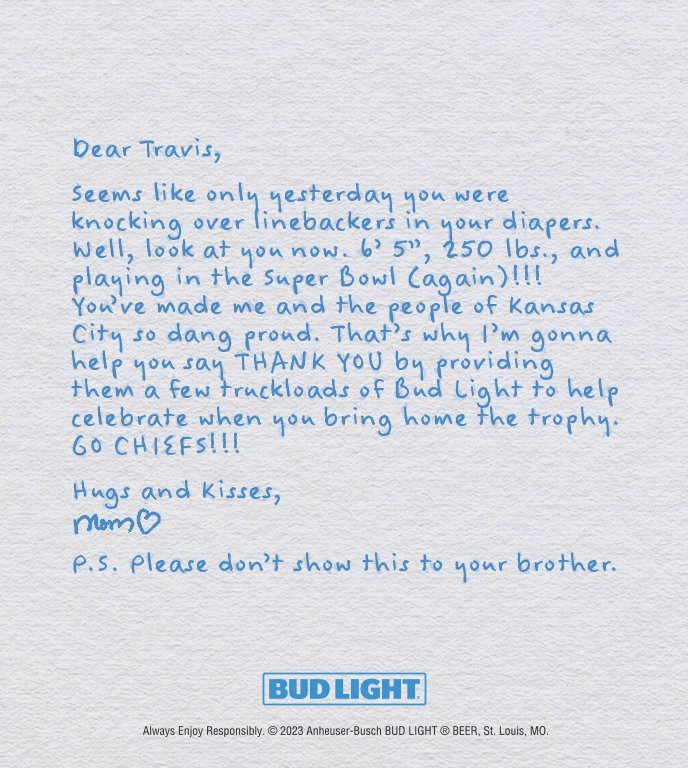 Dear Travis,
Seems like only yesterday you were
knocking over linebackers in your diapers.
Well, look at you now. 6’ 5”, 250 lbs., and
playing in the Super Bowl (again)!!!
You’ve made me and the people of Kansas
City so dang proud. That’s why I’m gonna
help you say THANK YOU by providing
them a few truckloads of Bud Light to help
celebrate when you bring home the trophy.
GO CHIEFS!!!
Hugs and Kisses,
Mom♡
P.S. Please don’t show this to your brother.
BUD LIGHT
Always Enjoy Responsibly. © 2023 Anheuser-Busch BUD LIGHT ® BEER, St. Louis, MO.